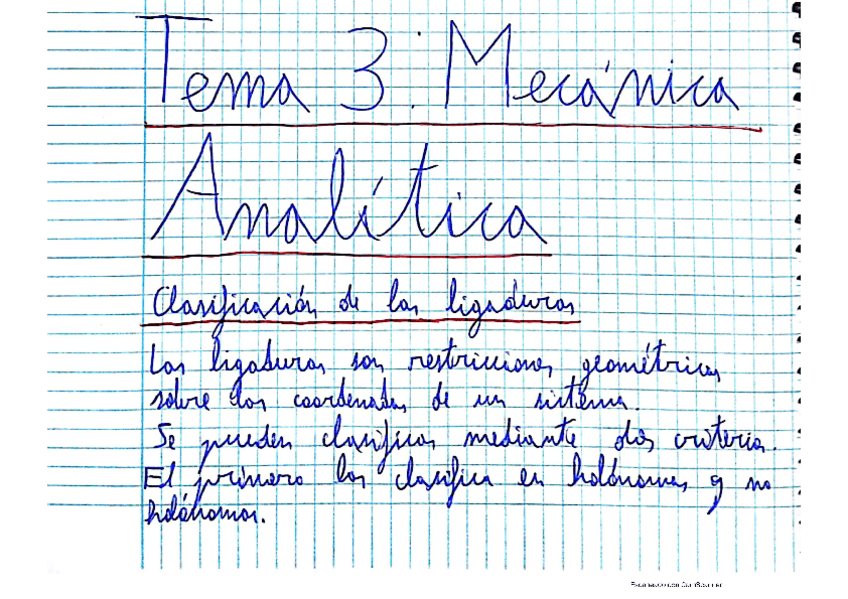 Tema 3: Mecánica
Analítica
Clasificación de las ligaduras
Las ligaduras son restricciones geométricas
sobre las coordenadas de un sistema.
Se pueden clasificar mediante dos criterios.
El primero las clasifica en holónomas y no
holónomas.